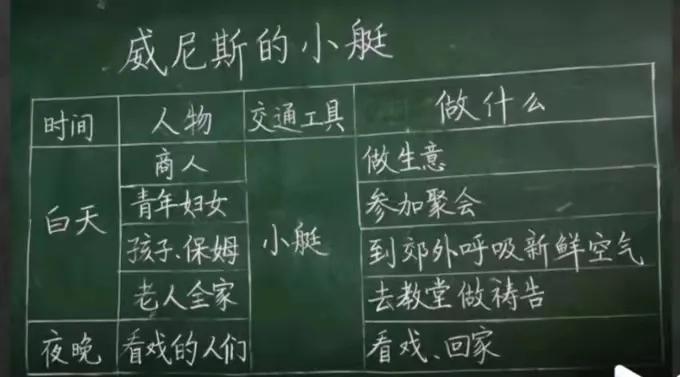 威尼斯的小艇
时间 人物 交通工具 做什么
白天 商人 小艇 做生意
青年妇女 参加聚会
孩子、保姆 到郊外呼吸新鲜空气
老人全家 去教堂做祷告
夜晚 看戏的人们 看戏、回家